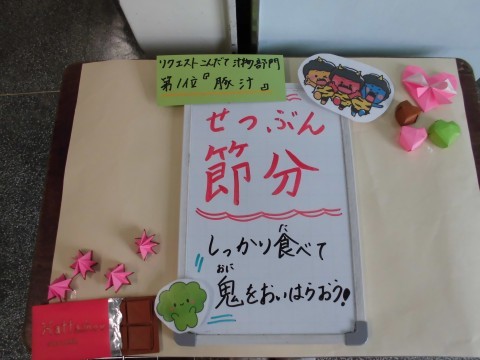 リクエストこんだて 汁物部門
第1位『豚汁』
せつぶん
節分
しっかり食べて
た
鬼をおいはらおう!
おに